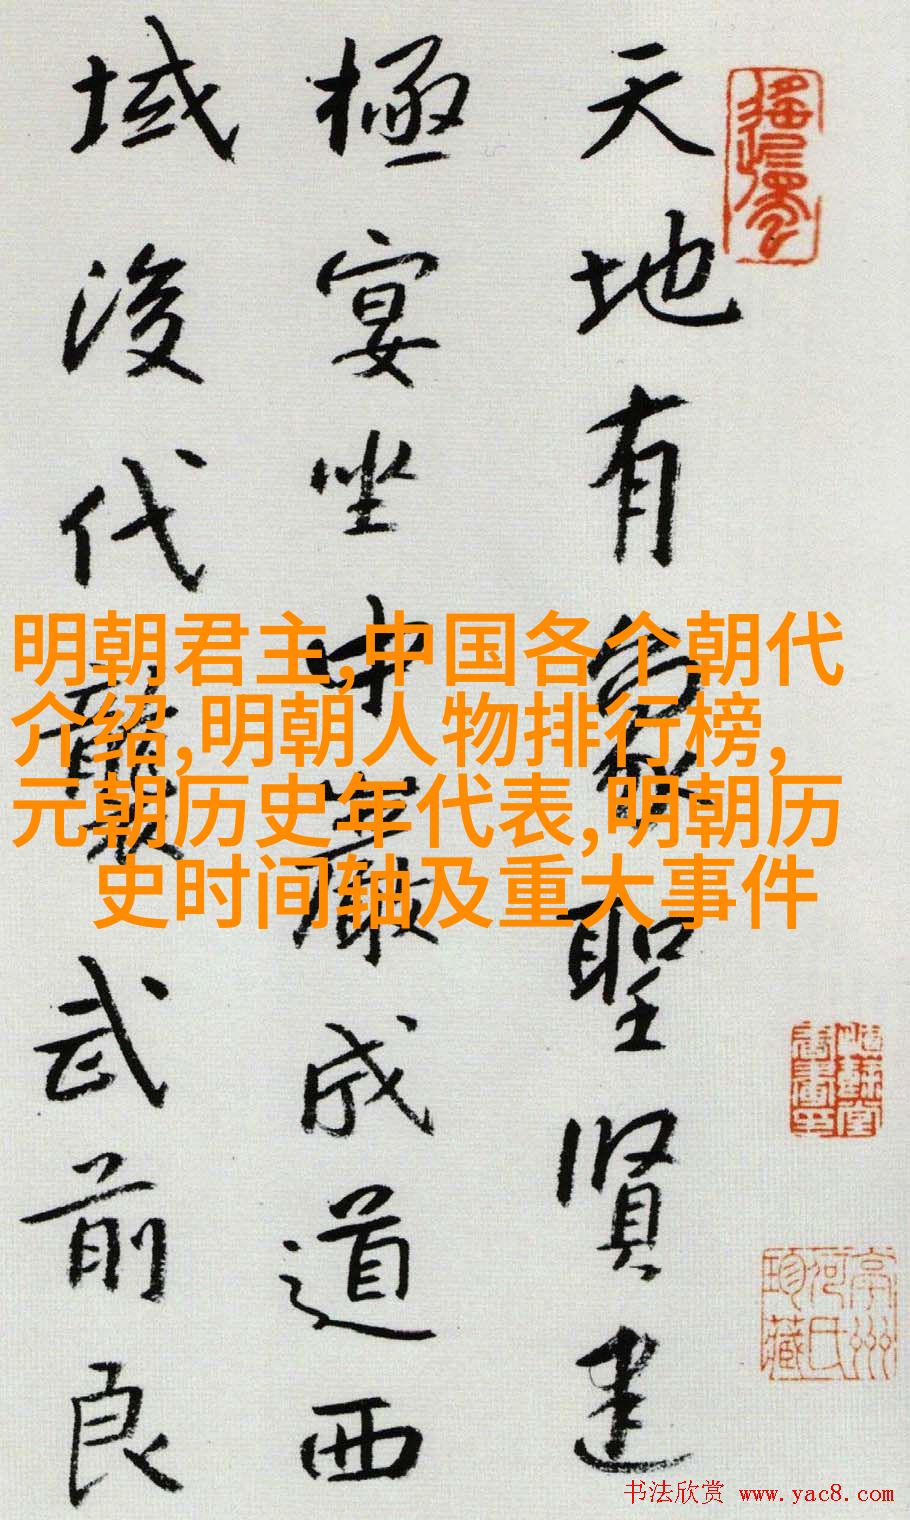 天地有象聖賢建
極宴坐中巖成道西
域後代襲武前良
明朝君主,中国各个朝代
介绍,明朝人物排行榜,
元朝历史年代表,明朝历
史时间轴及重大事件
珍藏
书法欣赏 www.yac8.com